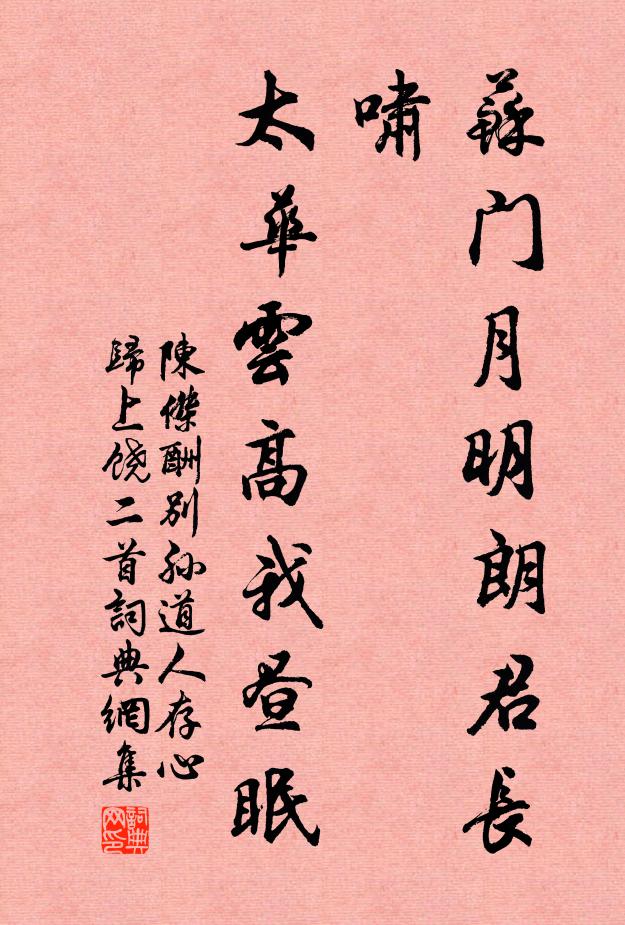 蘇门月明朗君長
嘯
太華雲高我昼眠
陳傑酬别孙道人存心
歸上饶二首詞典網集
詞典
网印